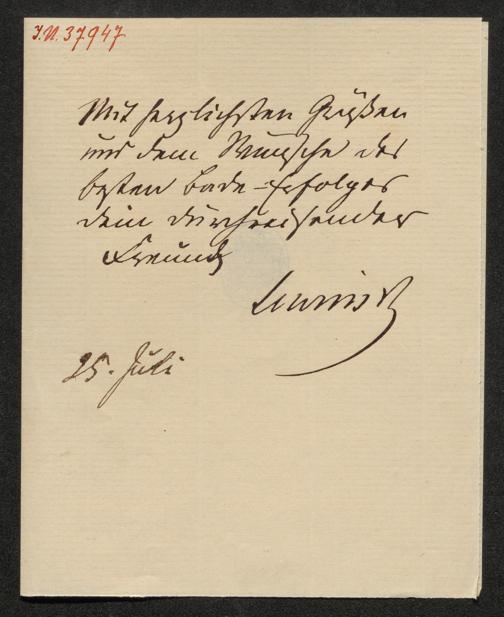 I.N. 37947
Mit herzlichsten Grüßen
und dem Wunsche des
besten Bade-Erfolges
dein durchreisender
Freund
Lewinsky
25. Juli